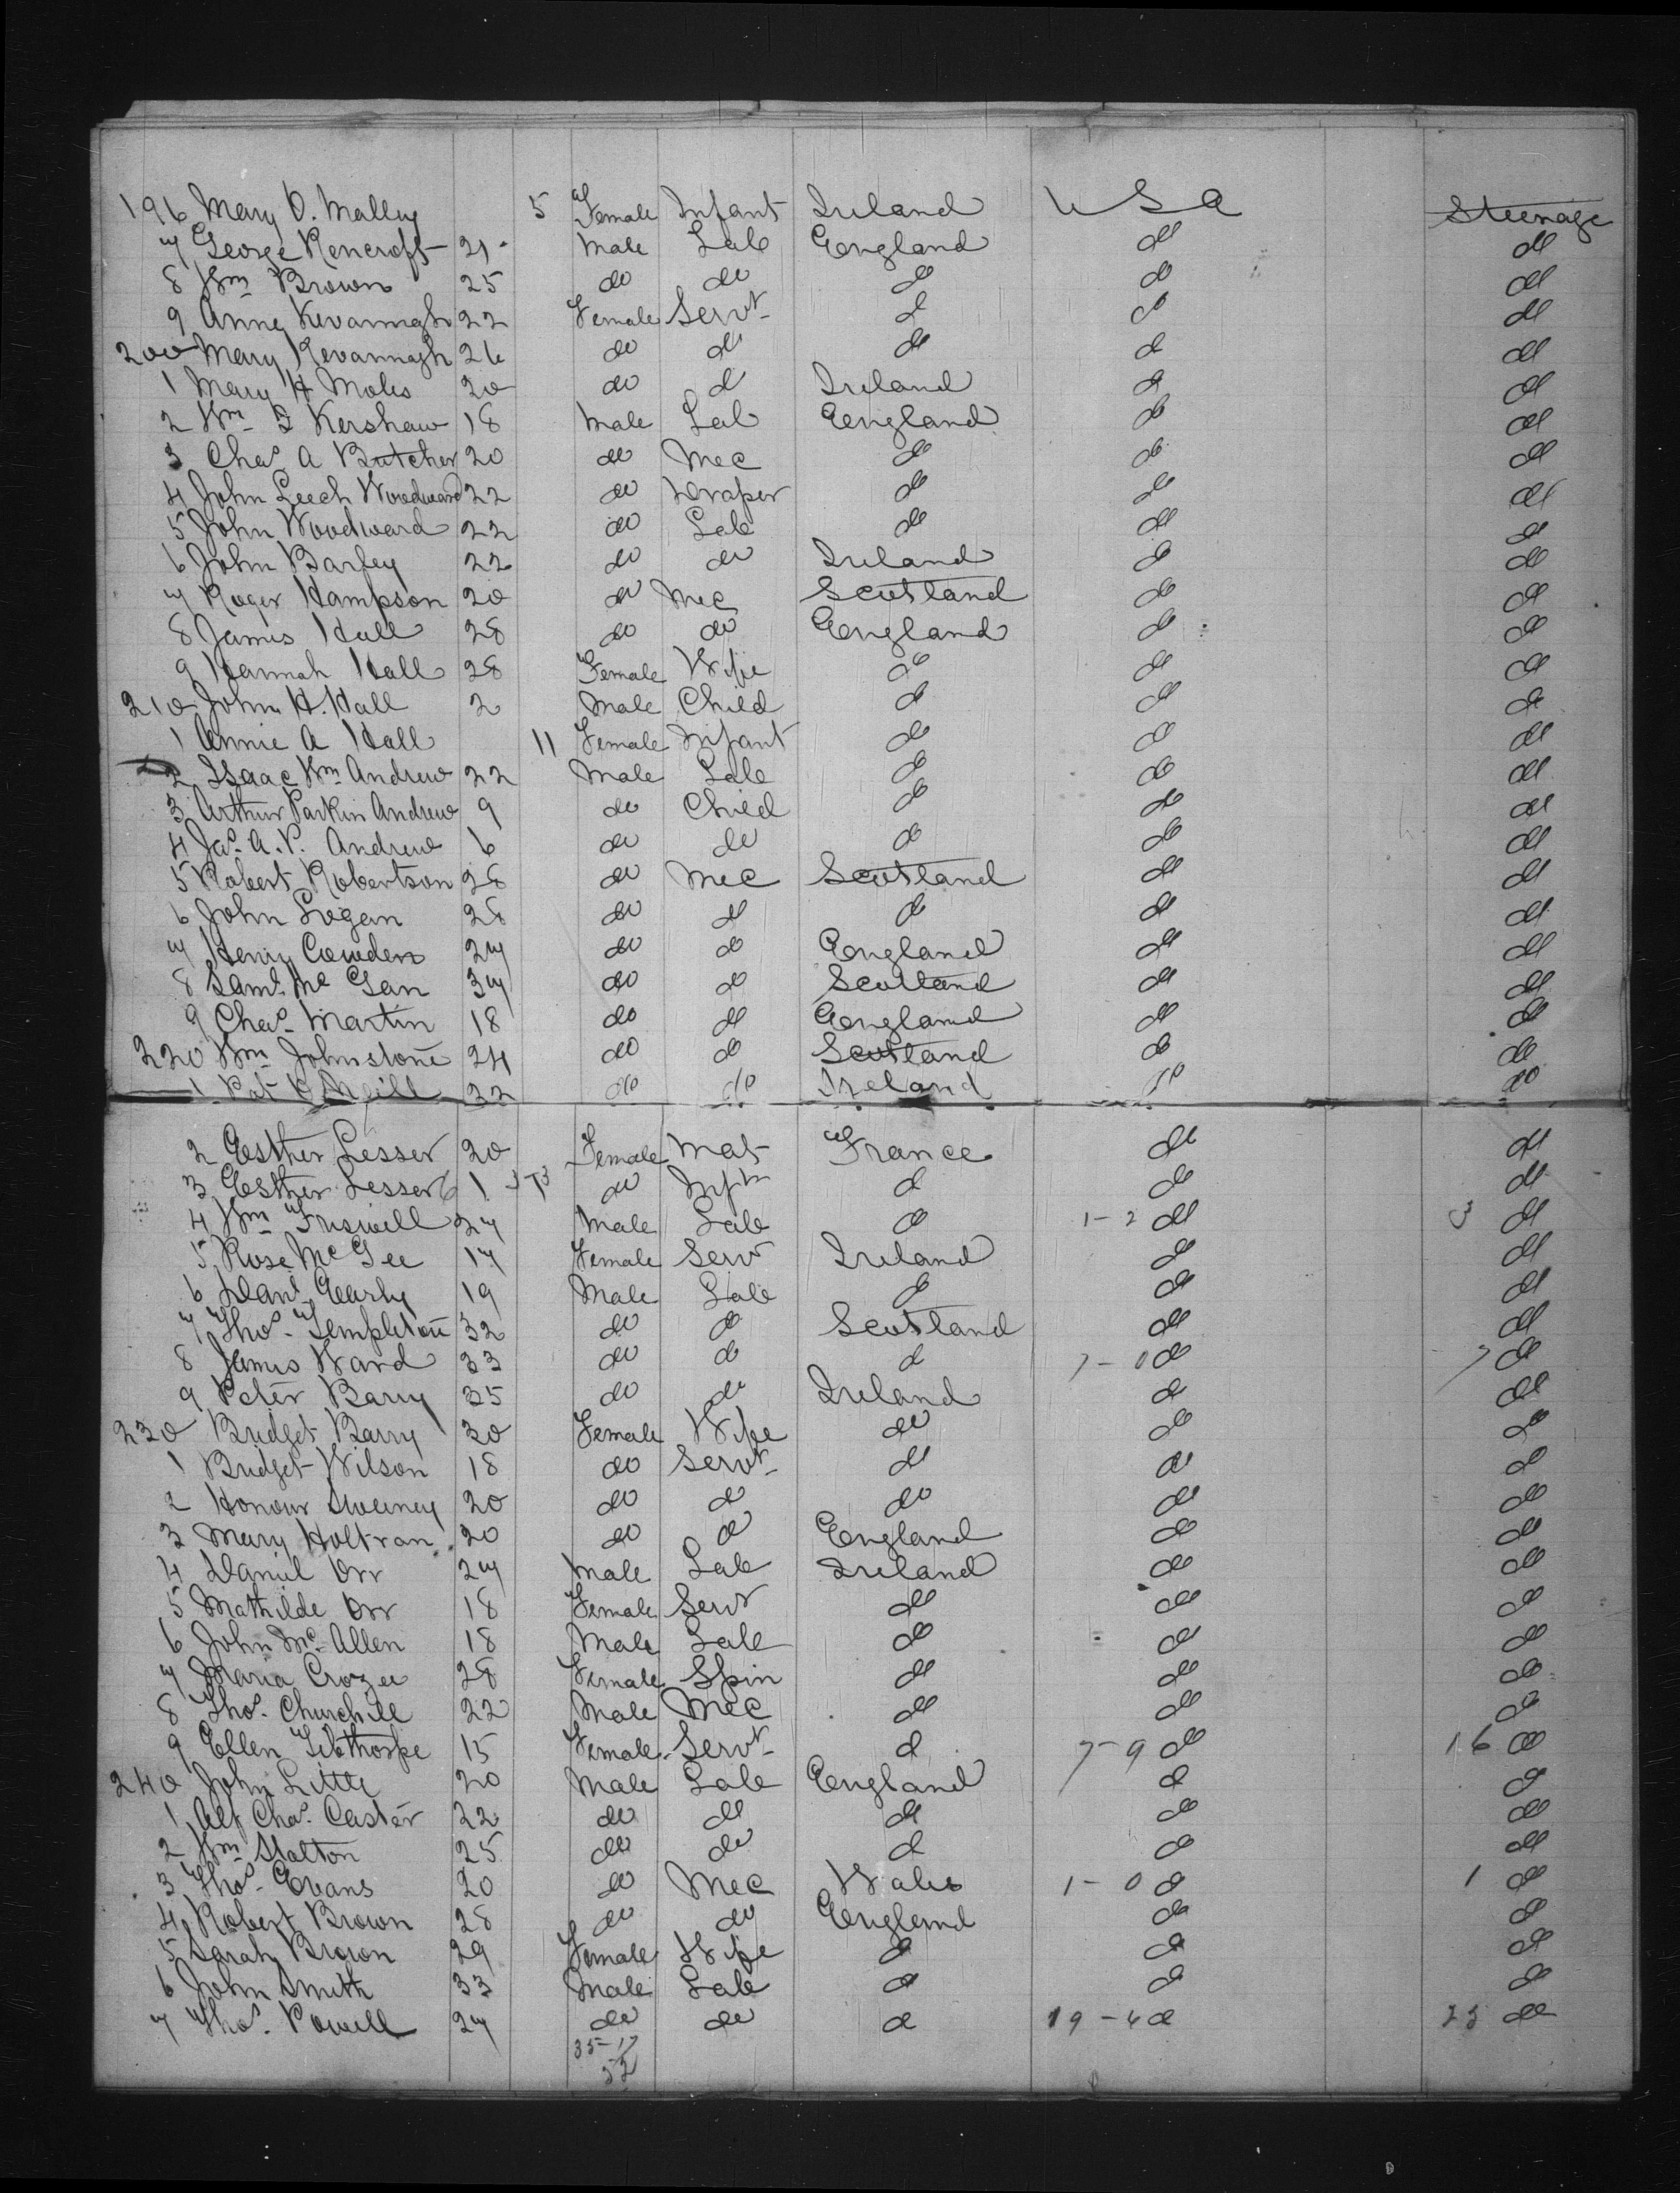 196 Mary O. Malley 5 Female Infant Ireland U S A Steerage
7 George Rencroft 21 Male Lab England do do
8 Wm Brown 25 do do do do do
9 Anny Kevannagh 22 Female Servt do do do
200 Mary Kevannagh 26 do do do do do
1 Mary H Moles 20 do do Ireland do do
2 Wm Kershaw 18 Male Lab England do do
3 Chas A Butcher 20 do Mec do do do
4 John Leech Woodward 22 do Draper do do do
5 John Woodward 22 do Lab do do do
6 John Barfey 22 do do Ireland do do
7 Roger Hampson 20 do Mec Scotland do do
8 James Hall 28 do do England do do
9 Hannah Hall 28 Female Wife do do do
210 John H. Hall 2 Male Child do do do
1 Annie A Hall 11 Female Infant do do do
2 Isaac Wm Andrew 22 Male Lab do do do
3 Arthur Parkin Andrew 9 do Child do do do
4 Jas. A. P. Andrew 6 do do do do do
5 Robert Robertson 28 do Mec Scotland do do
6 John Logan 28 do do do do do
7 Henry Cowden 27 do do England do do
8 Saml. Mc Gan 37 do do Scotland do do
9 Chas. Martin 18 do do England do do
220 Wm Johnstone 24 do do Scotland do do
1 Pat O Neill 22 do do Ireland do do
2 Esther Lesser 20 Female Mat France do do
3 Esther Lesser 1 do Infn do do do
4 Wm Friswell 27 Male Lab do 1-2 do 3 do
5 Rose McGee 17 Female Serv Ireland do do
6 Danl Gearly 19 Male Lab do do do
7 Thos. Templeton 32 do do Scotland do do
8 James Ward 33 do do do 7-0 do 7 do
9 Peter Barry 35 do do Ireland do do
230 Bridget Barry 30 Female Wife do do do
1 Bridget Wilson 18 do Servt do do do
2 Honour Sweeney 20 do do do do do
3 Mary Holtran 20 do do England do do
4 Daniel Orr 27 Male Lab Ireland do do
5 Mathilde Orr 18 Female Servt do do do
6 John Mc Allen 18 Male Lab do do do
7 Maria Crozee 28 Female Spin do do do
8 Thos. Churchill 22 Male Mec do do do
9 Ellen Tibthorpe 15 Female Servt do 7-9 do 16 do
240 John Little 20 Male Lab England do do
1 Alf Chas. Caster 22 do do do do do
2 Wm Stalton 25 do do do do do
3 Thos. Evans 20 do Mec Wales 1-0 do 1 do
4 Robert Brown 28 do do England do do
5 Sarah Brown 29 Female Wife do do do
6 John Smith 33 Male Lab do do do
7 Thos. Powell 27 do do do 19-4 do 23 do
35-17
52